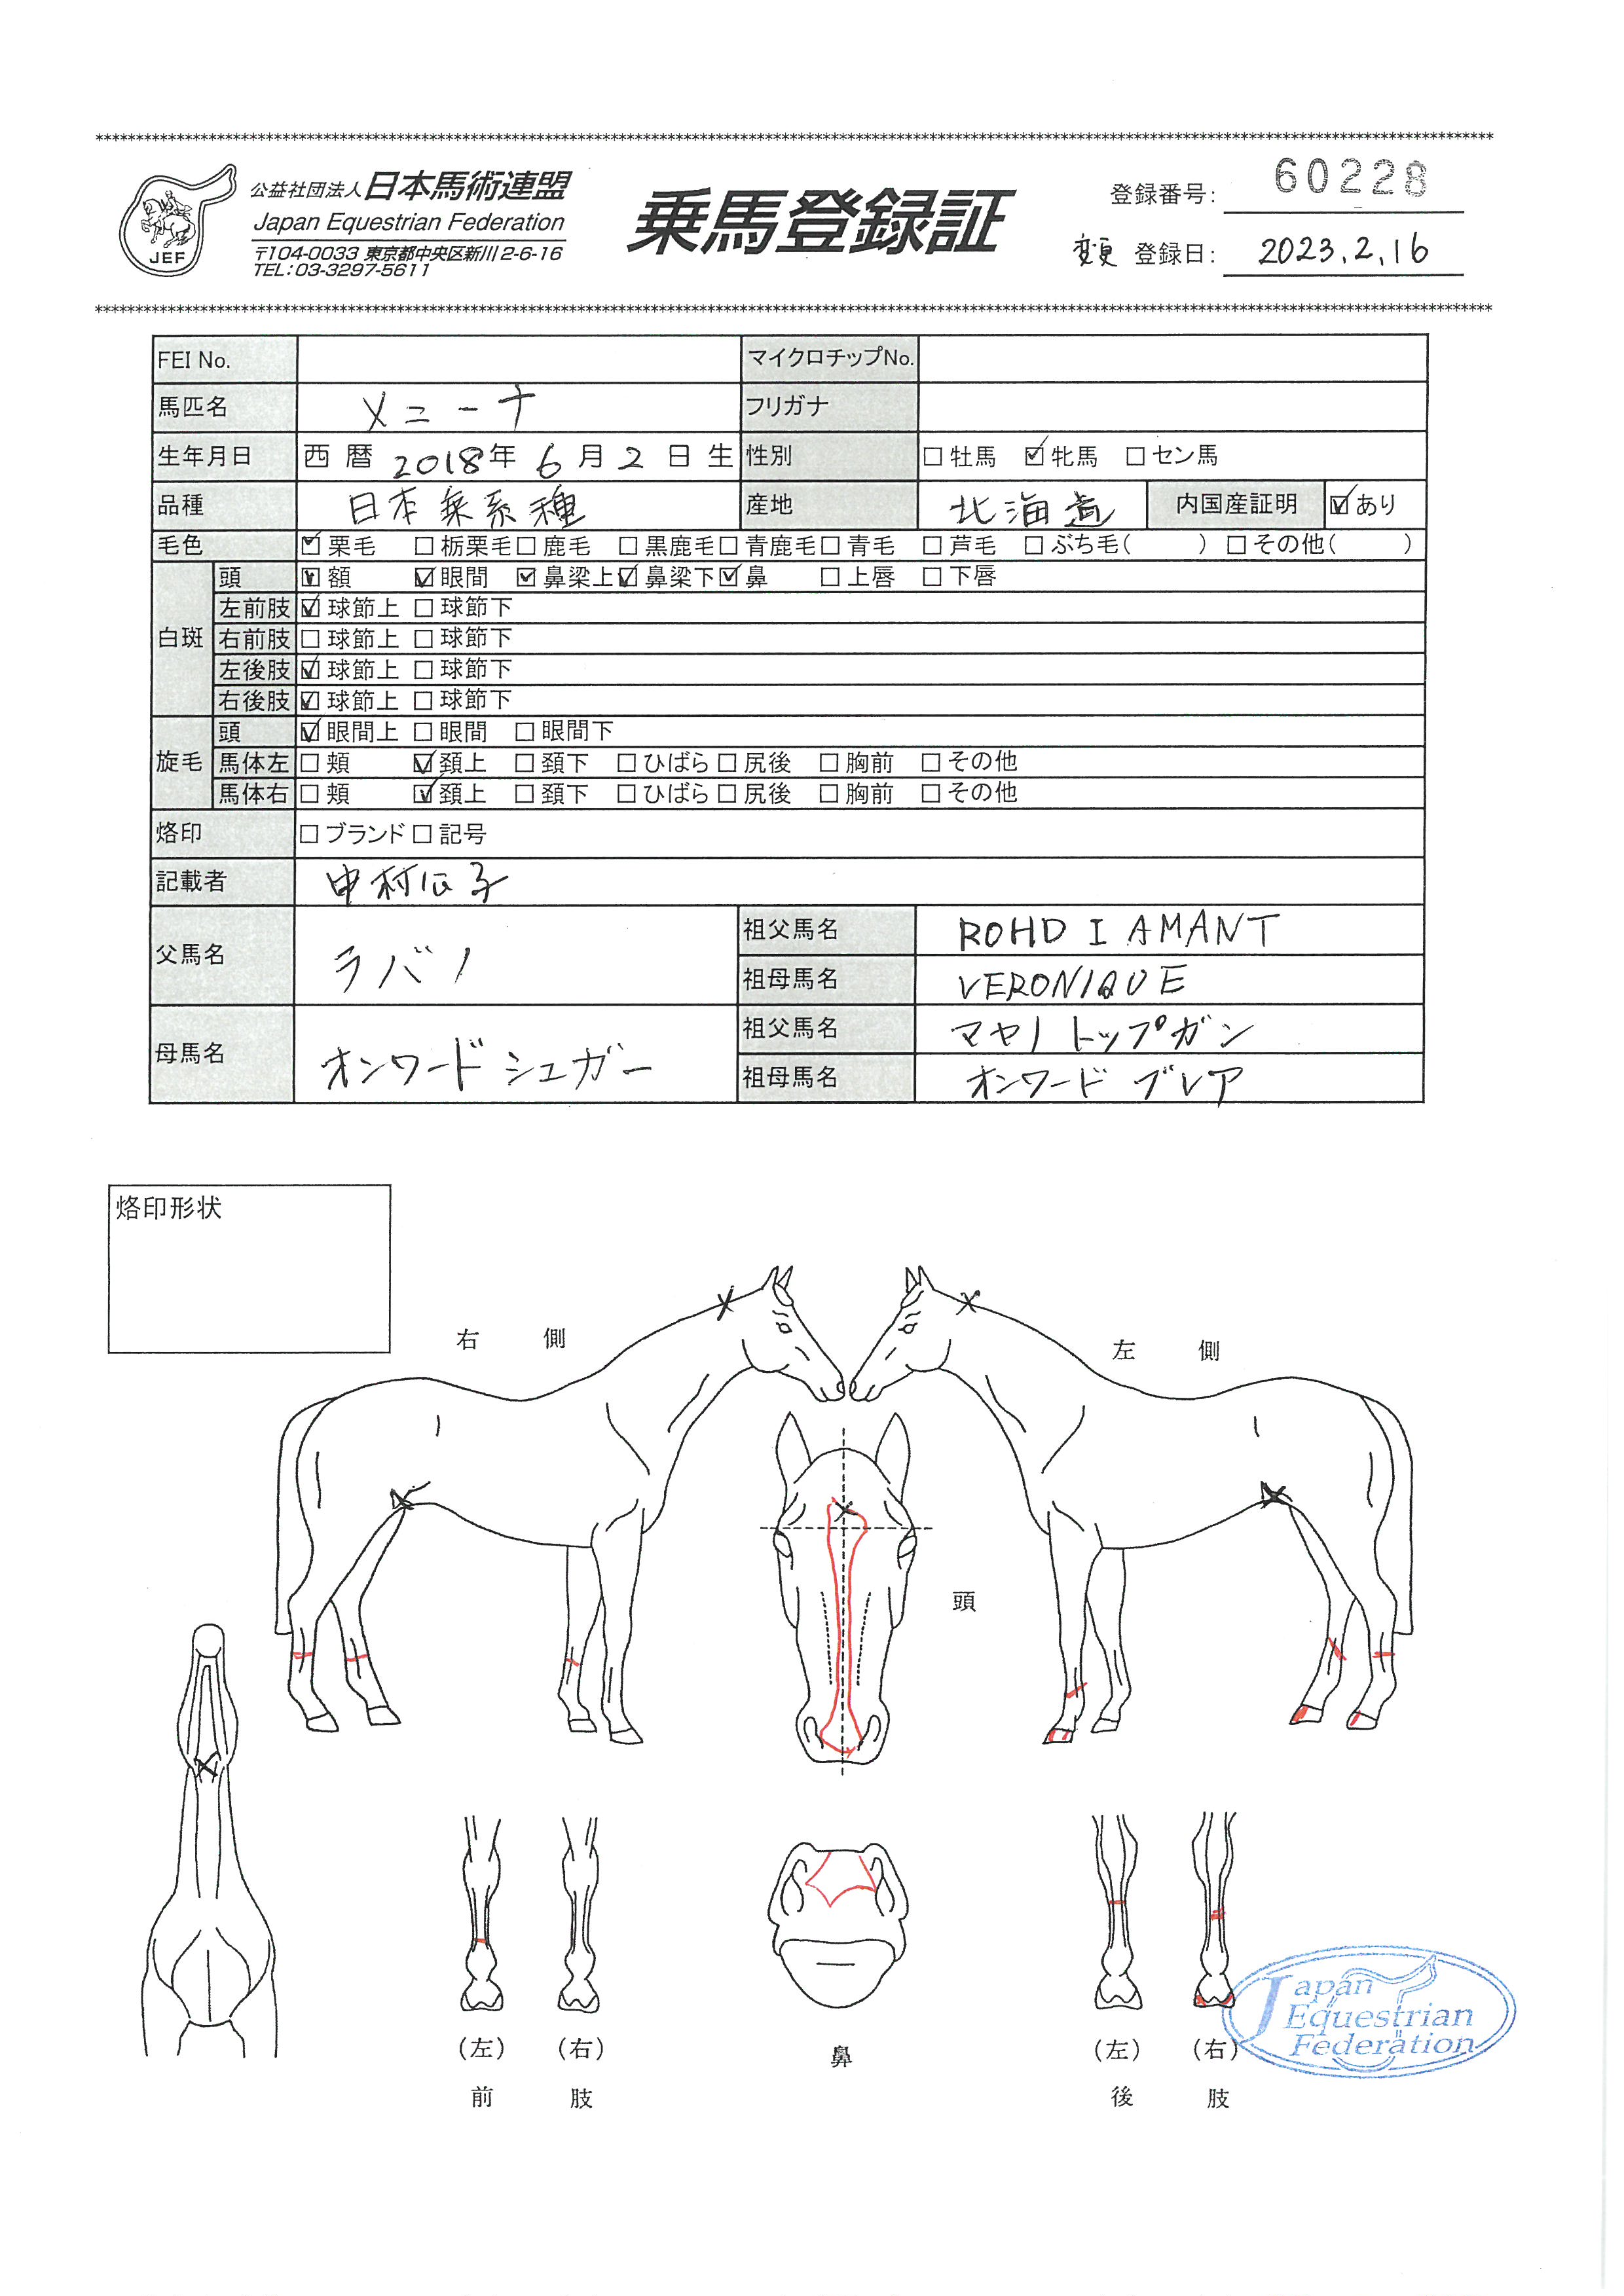 公益社団法人日本馬術連盟
Japan Equestrian Federation
〒104-0033 東京都中央区新川2-6-16
TEL:03-3297-5611
JEF
乗馬登録証
登録番号: 60228
変更 登録日: 2023.2.16
FEI No. マイクロチップNo.
馬匹名 メニーナ フリガナ
生年月日 西暦 2018年 6月 2日生 性別 □牡馬 ☑牝馬 □セン馬
品種 日本乗系種 産地 北海道 内国産証明 ☑あり
毛色 ☑栗毛 □栃栗毛 □鹿毛 □黒鹿毛 □青鹿毛 □青毛 □芦毛 □ぶち毛( ) □その他( )
白斑 頭 ☑額 ☑眼間 ☑鼻梁上 ☑鼻梁下 ☑鼻 □上唇 □下唇
左前肢 ☑球節上 □球節下
右前肢 □球節上 □球節下
左後肢 ☑球節上 □球節下
右後肢 ☑球節上 □球節下
旋毛 頭 ☑眼間上 □眼間 □眼間下
馬体左 □頬 ☑頚上 □頚下 □ひばら □尻後 □胸前 □その他
馬体右 □頬 ☑頚上 □頚下 □ひばら □尻後 □胸前 □その他
烙印 □ブランド □記号
記載者 中村 子
父馬名 ラバノ 祖父馬名 ROHDIAMANT
祖母馬名 VERONIQUE
母馬名 オンワードシュガー 祖父馬名 マヤノトップガン
祖母馬名 オンワード ブレア
烙印形状
右側
左側
頭
(左) (右)
前肢
鼻
(左) (右)
後肢
Japan
Equestrian
Federation